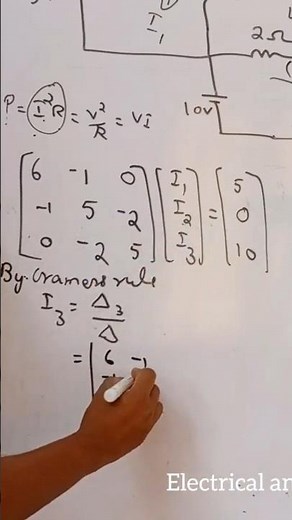 I₁
2Ω
10v
P = I²R = V²/R = VI
[6 -1 0] [I₁] = [5]
[-1 5 -2] [I₂] [0]
[0 -2 5] [I₃] [10]
By Cramers rule
I₃ = Δ₃/Δ
= | 6 -1
Electrical an